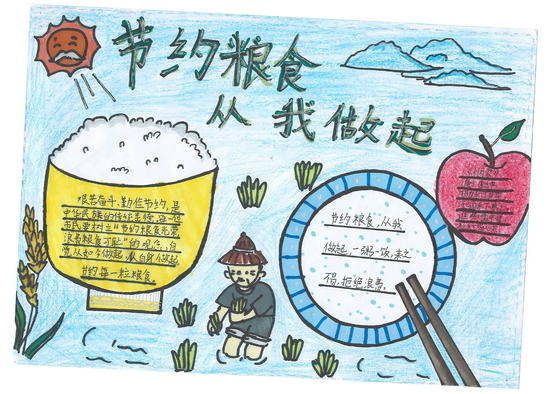 节约粮食
从我做起
艰苦奋斗、勤俭节约,是
中华民族的传统美德,每一位
市民要树立"节约粮食光荣,
浪费粮食可耻"的观念,自
觉从如今做起,从自身做起
节约每一粒粮食。
节约粮食,从我
做起,一粥一饭,来之
不易,拒绝浪费。